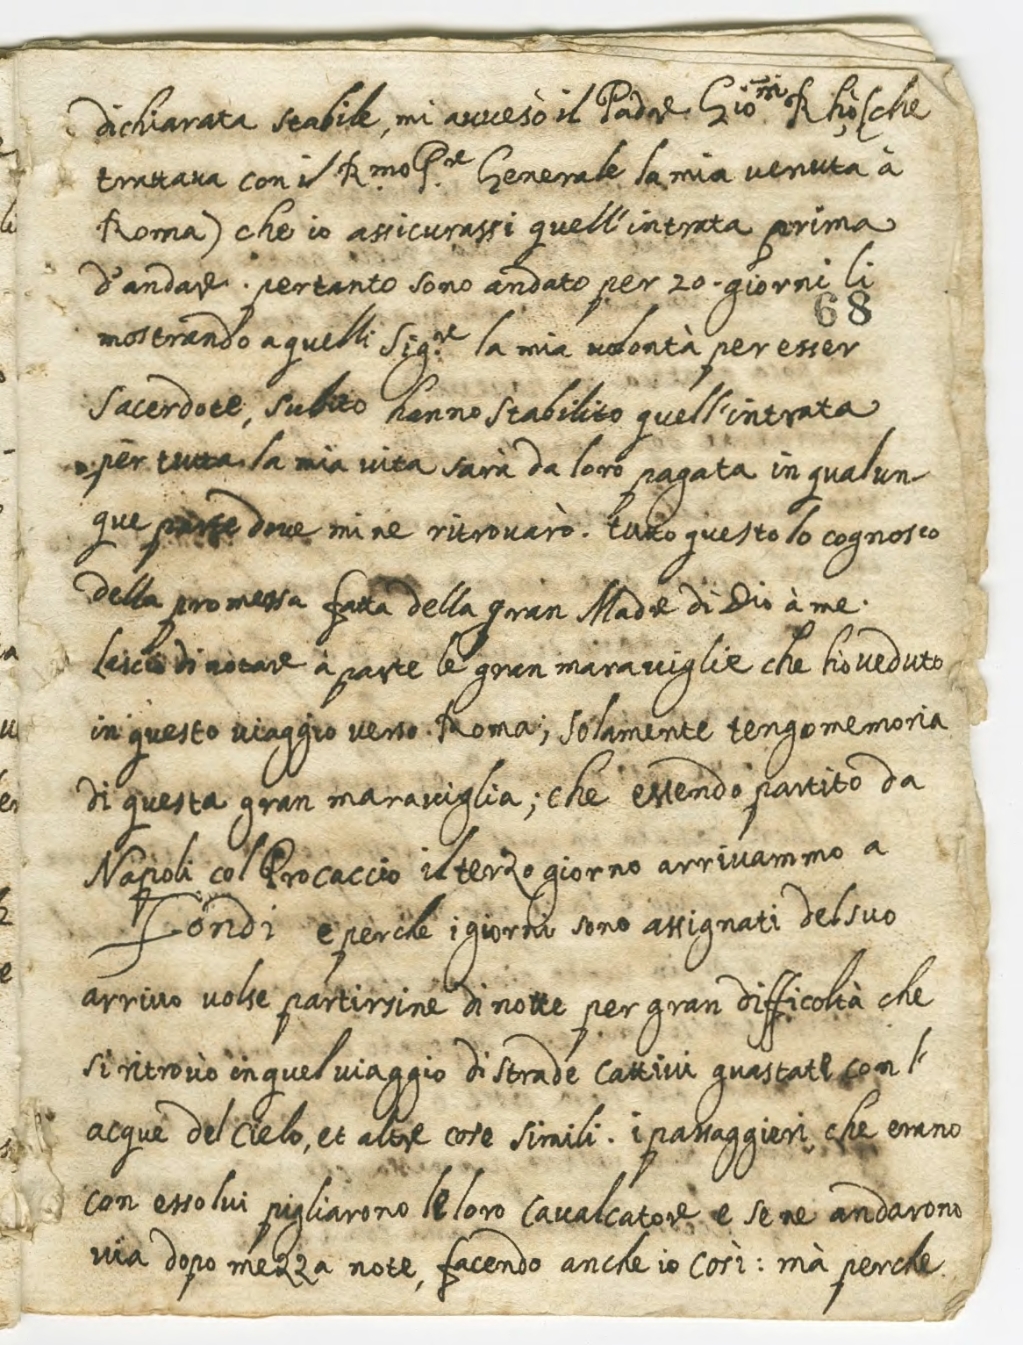 dichiarata stabile, mi avvesò il Padre Gio:ni Rhò (che
trattava con il R.mo P.re Generale la mia venuta à
Roma) che io assicurassi quell'intrata prima
d'andare. pertanto sono andato per 20. giorni li
68
mostrando a quelli Sig.re la mia volontà per esser
Sacerdote, subito hanno stabilito quell'intrata
per tutta la mia vita sarà da loro pagata in qualun-
que parte dove mi ne ritrovarò. tutto questo lo cognosco
della promessa fatta della gran Madre di Dio à me.
lascio di notare à parte le gran maraviglie che hò veduto
in questo viaggio verso Roma; solamente tengo memoria
di questa gran maraviglia; che essendo partito da
Napoli col Procaccio il terzo giorno arrivammo a
Fondi e perche i giorni sono assignati del suo
arrivo volse partirsine di notte per gran difficoltà che
si ritrovò in quel viaggio di strade cattivi guastate con l'
acque del Cielo, et altre cose simili. i passaggieri che erano
con esso lui pigliarono le loro cavalcatore e se ne andarono
via dopo mezza note, facendo anche io così: mà perche